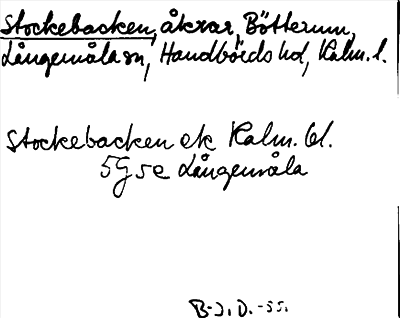 Stockebacken, åkrar, Bötterum,
Långemåla sn, Handbörds hd, Kalm. l.
Stockebacken ek Kalm. bl.
5G5e Långemåla
B-J. D. -55.